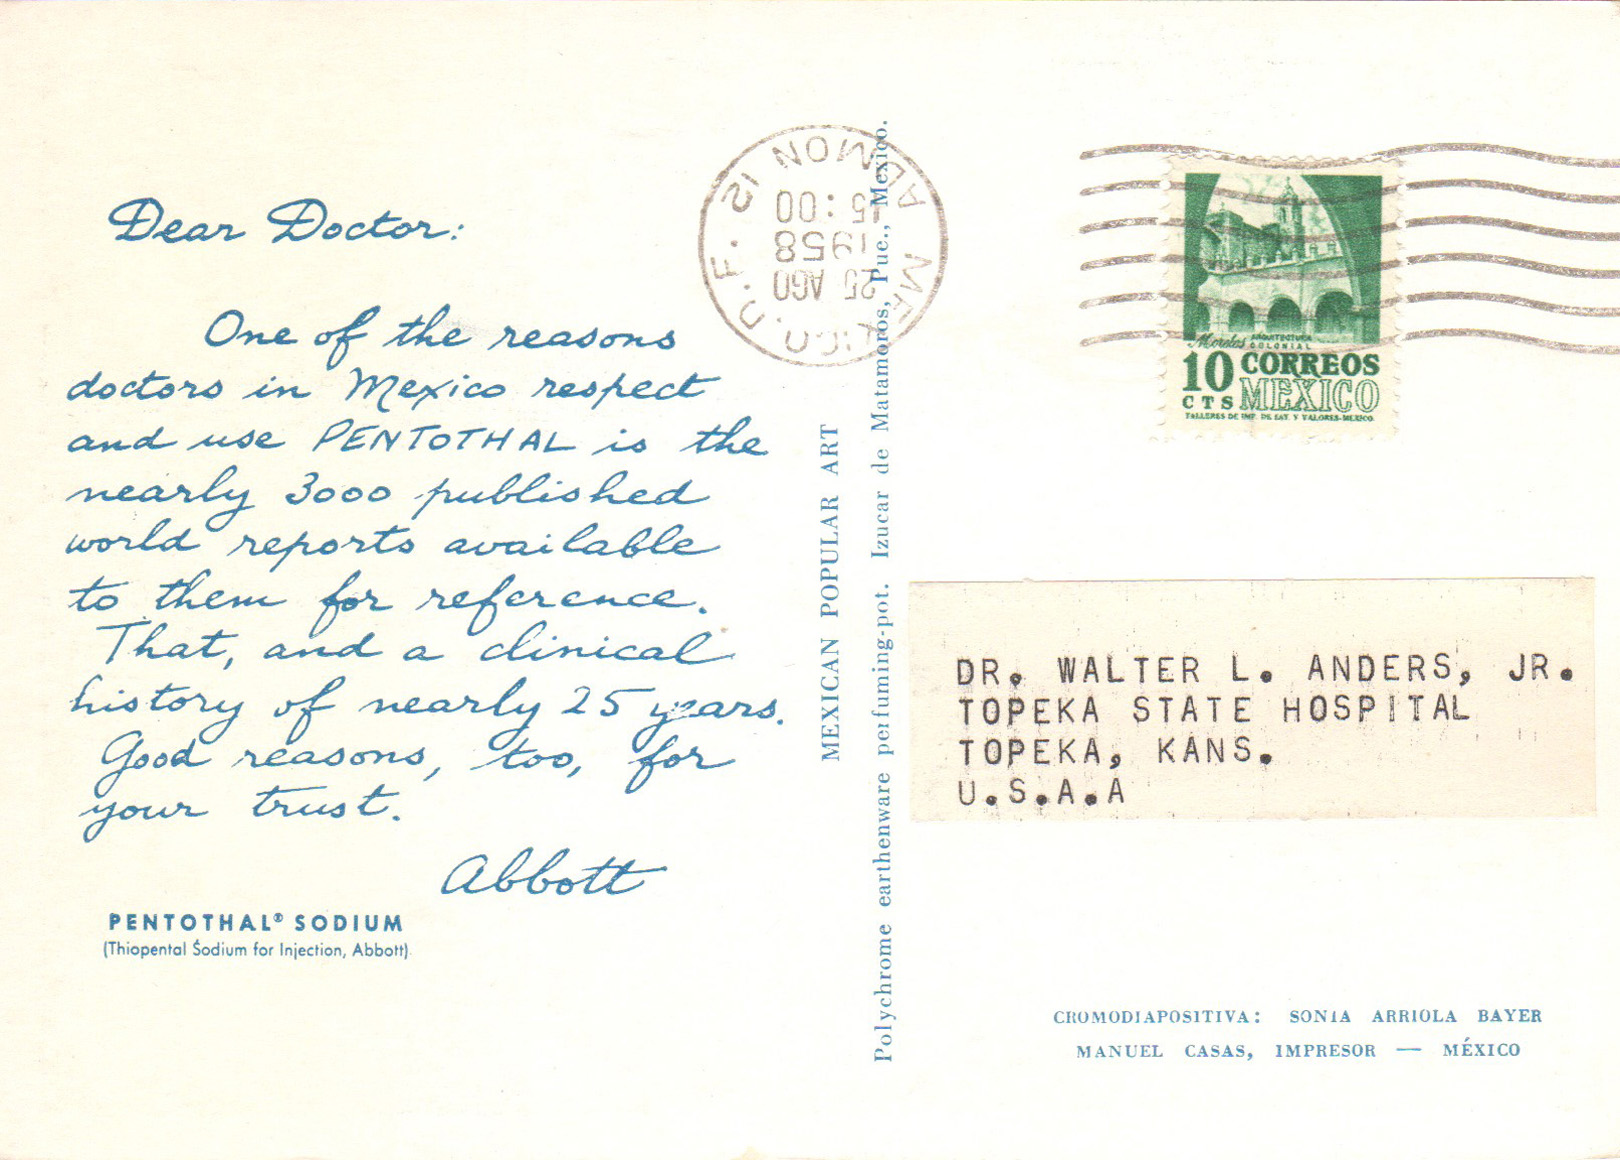 Dear Doctor:
One of the reasons
doctors in Mexico respect
and use PENTOTHAL is the
nearly 3000 published
world reports available
to them for reference.
That, and a clinical
history of nearly 25 years.
Good reasons, too, for
your trust.
Abbott
PENTOTHAL® SODIUM
(Thiopental Sodium for Injection, Abbott)
MEXICAN POPULAR ART
Polychrome earthenware perfuming-pot. Izucar de Matamoros, Pue., Mexico.
ADMON 12
15:00
1958
25 AGO
MEXICO. D.F.
Morelos ARQUITECTURA
COLONIAL
10 CORREOS
CTS MEXICO
TALLERES DE IMP. DE EST. Y VALORES-MEXICO.
DR. WALTER L. ANDERS, JR.
TOPEKA STATE HOSPITAL
TOPEKA, KANS.
U.S.A.A
CROMODIAPOSITIVA: SONIA ARRIOLA BAYER
MANUEL CASAS, IMPRESOR — MÉXICO